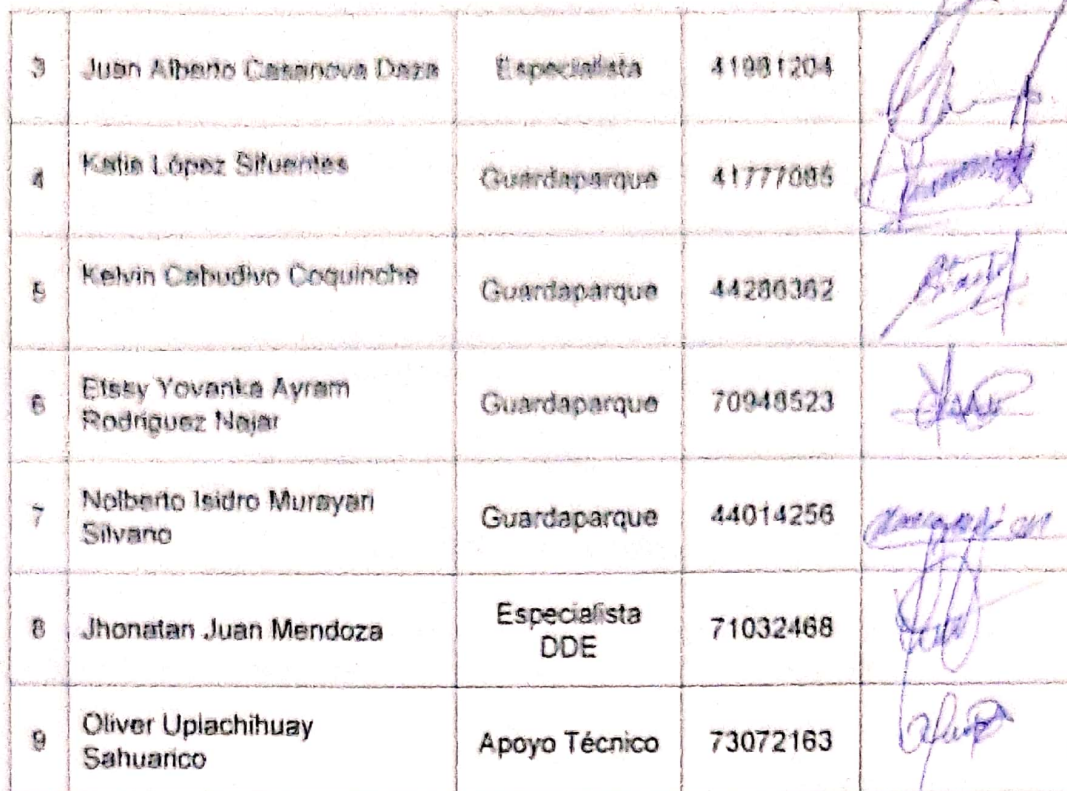 3 Juan Alberto Casanova Daza Especialista 41981204
4 Katia López Sifuentes Guardaparque 41777095
5 Kelvin Cabudivo Coquinche Guardaparque 44286362
6 Etssy Yovanka Ayram
Rodriguez Najar Guardaparque 70948523
7 Nolberto Isidro Murayari
Silvano Guardaparque 44014256
8 Jhonatan Juan Mendoza Especialista
DDE 71032468
9 Oliver Upiachihuay
Sahuarico Apoyo Técnico 73072163